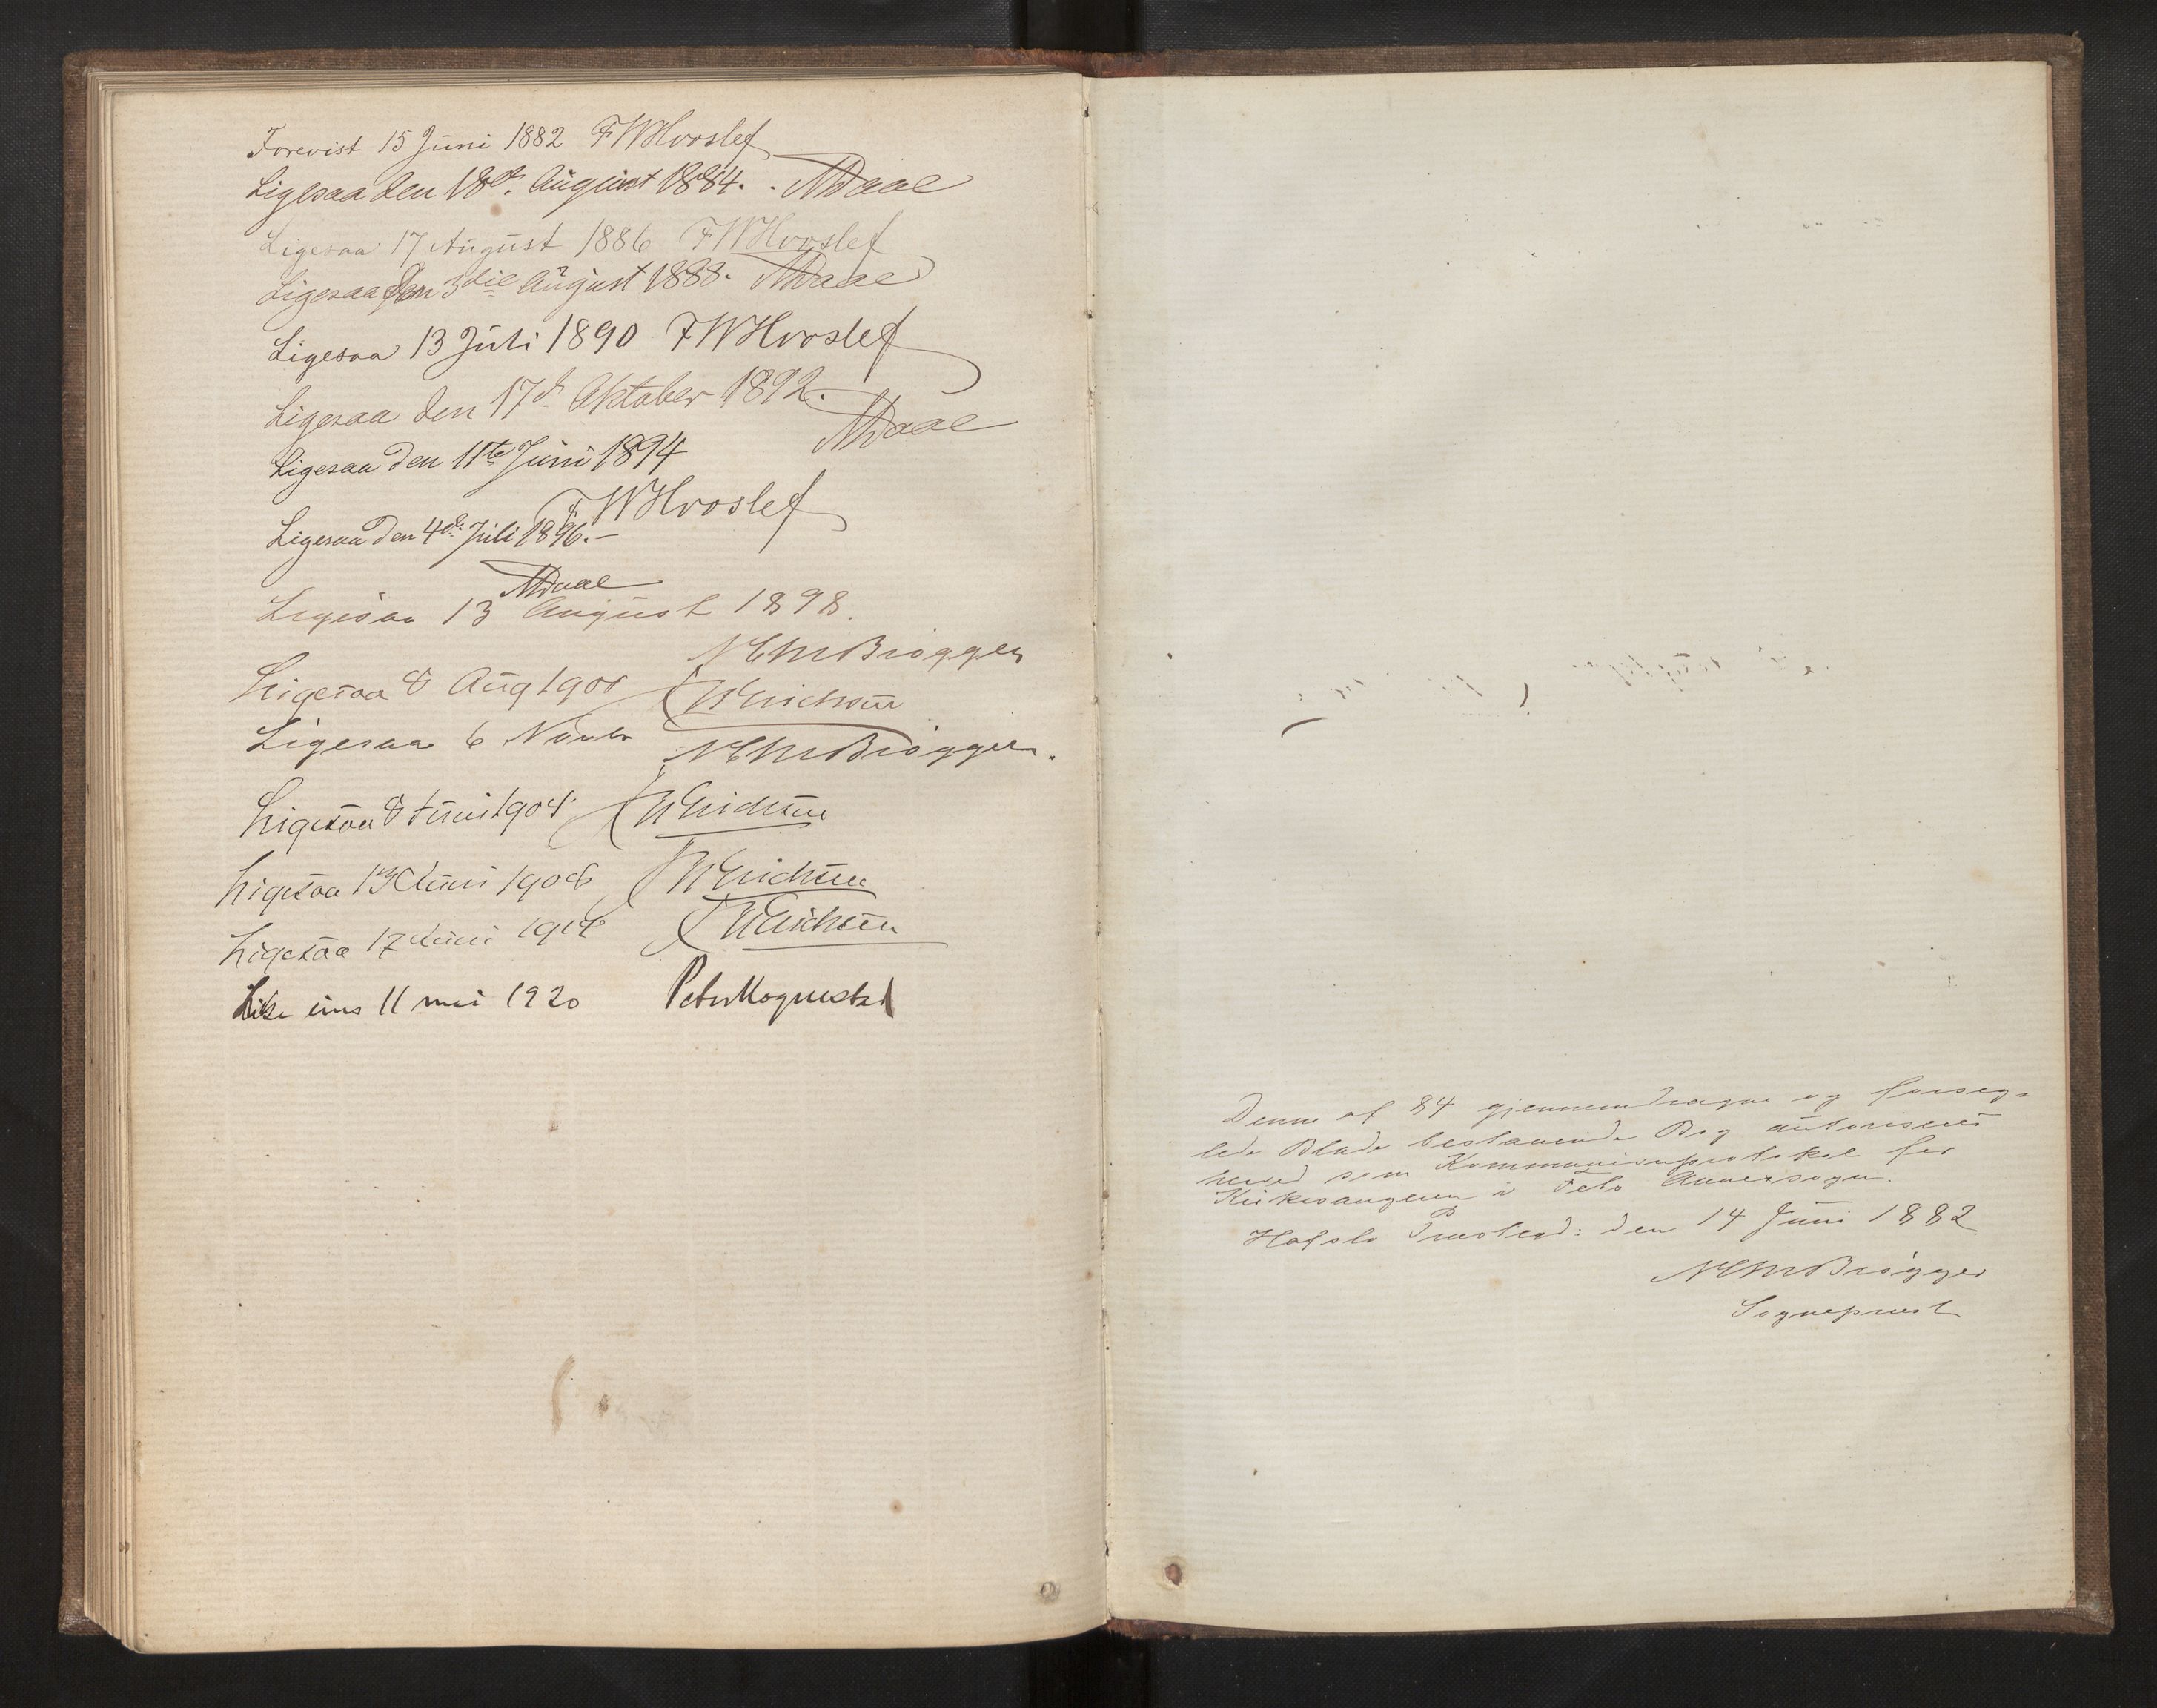 Forevist 15 Juni 1882 FWHvoslef
Ligesaa den 18de August 1884. Daae
Ligesaa 17 August 1886 FWHvoslef
Ligesaa den 3die August 1888. Daae
Ligesaa 13 Juli 1890 FWHvoslef
Ligesaa den 17de Oktober 1892.
Daae
Ligesaa den 11te Juni 1894
FWHvoslef
Ligesaa den 4de Juli 1896.–
Daae
Ligesaa 13 August 1898.
NEMBrøgger
Ligesaa 8 Aug 1900 Erichsen
Ligesaa 6 Novbr NEMBrøgger.
Ligesaa 8 Juni 1904 Erichsen
Ligesaa 13 Juni 1906 Erichsen
Ligesaa 17 Juni Erichsen
Like eins 11 mai 1920 Peter
Denne af 84 gjennemdragne og forseg=
lede Blade bestaaende Bog autoriseres
herved som Kommunionprotokol for
Kirkesangeren i Annexsogn.
Hafslo Præstegd: den 14 Juni 1882
NEMBrøgger
Sognepræst